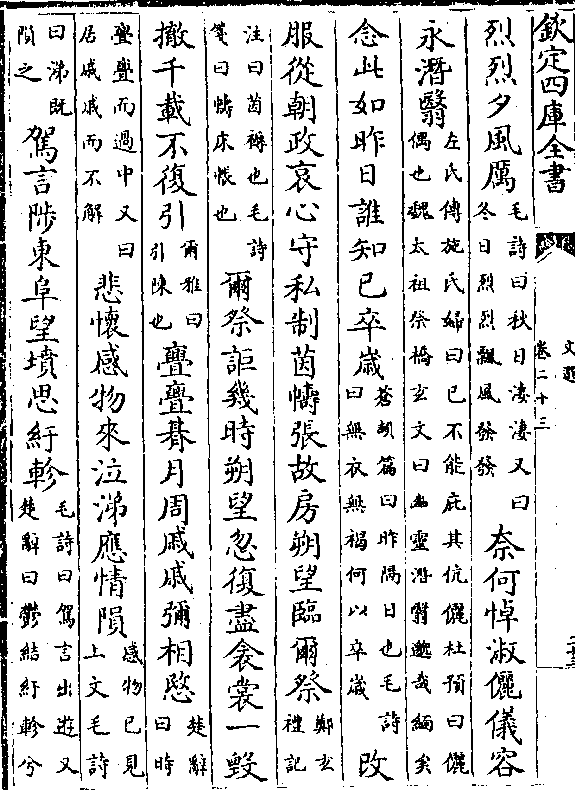 欽定四庫全書
文選
卷二十三
烈烈夕風厲毛詩曰秋日淒淒又曰冬日烈烈飄風發發奈何悼淑儷儀容
永潛翳左氏傳施氏婦曰已不能庇其伉儷杜預曰儷偶也魏太祖祭橋玄文曰幽靈潛翳邈哉緬矣
念此如昨日誰知已卒歳蒼頡篇曰昨隔日也毛詩曰無衣無褐何以卒歳改
服從朝政哀心守私制茵幬張故房朔望臨爾祭鄭玄禮記
注曰茵褥也毛詩箋曰幬床帳也爾祭詎幾時朔望忽復盡衾裳一毀
撤千載不復引爾雅曰引陳也亹亹朞月周戚戚彌相愍楚辭曰時
亹亹而過中又曰居戚戚而不解悲懷感物來泣涕應情隕感物已見上文毛詩
曰涕既隕之駕言陟東阜望墳思紆軫毛詩曰駕言出遊又楚辭曰鬱結紆軫兮